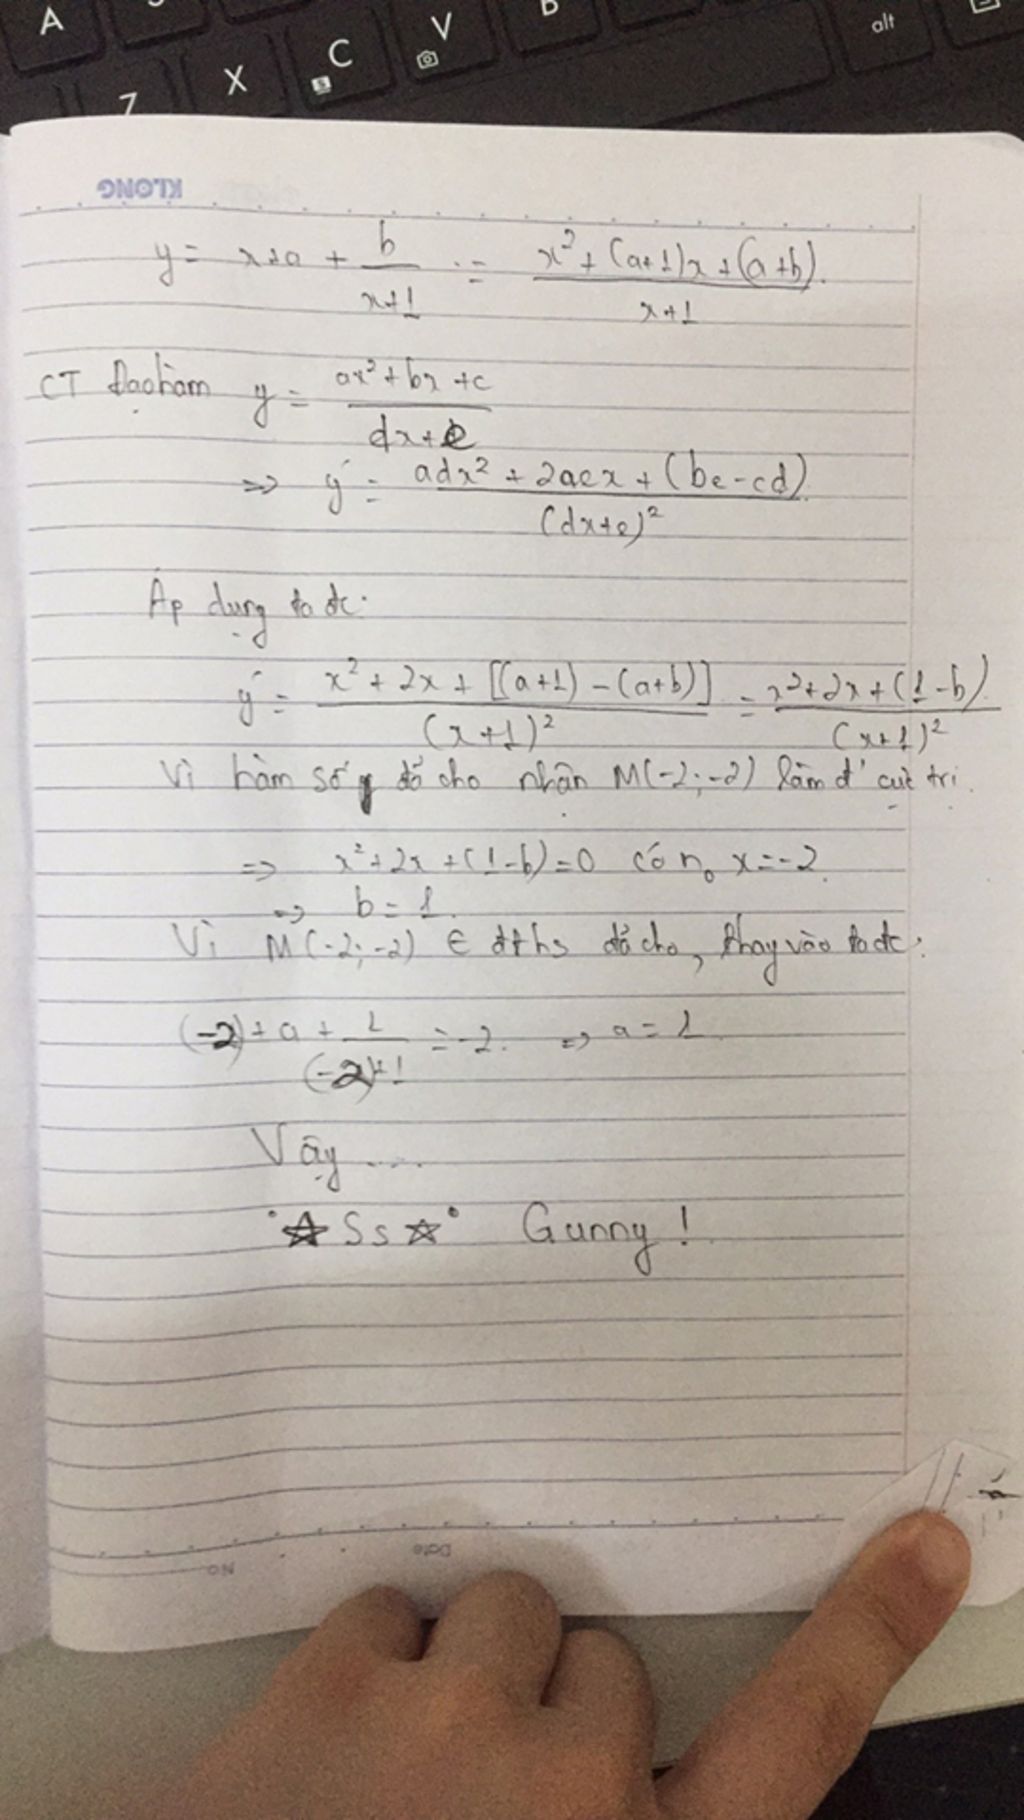 A
V
B
alt
Z
X
C
KLONG
y = x+a + b/(x+1) = (x² + (a+1)x + (a+b))/(x+1)
CT Đạo hàm y = (ax² + bx + c)/(dx+e)
=> y' = (adx² + 2aex + (be-cd))/(dx+e)²
Áp dụng ta đc:
y' = (x² + 2x + [(a+1) - (a+b)])/(x+1)² = (x²+2x+(1-b))/(x+1)²
Vì hàm số đã cho nhận M(-2;-2) làm đ' cực trị.
=> x²+2x+(1-b)=0 có n₀ x=-2.
=> b=1.
Vì M(-2;-2) ∈ đths đã cho, thay vào ta đc:
(-2)+a+1/((-2)+1) = -2. => a=1
Vậy ....
°☆Ss☆° Gunny!
Date
No